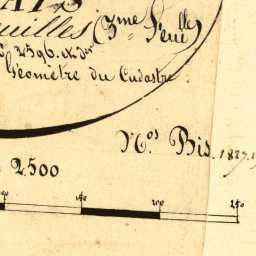 euilles (3me Feuille)
2596. &
Géomètre du Cadastre
Nos Bis. 1827.
2500
50 150 200 250